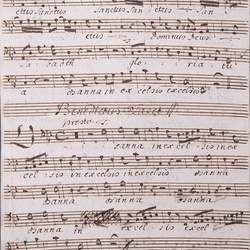 ctus Sanctus Sanctus San
ctus Dominus Deus
Sabaoth glo ria tu
a osanna in excelsis excelsis
Benedictus tacet
presto
osanna in excel sis in ex
cel sis in excelsis in excelsis
osanna osanna osanna
osanna in excel sis in ex